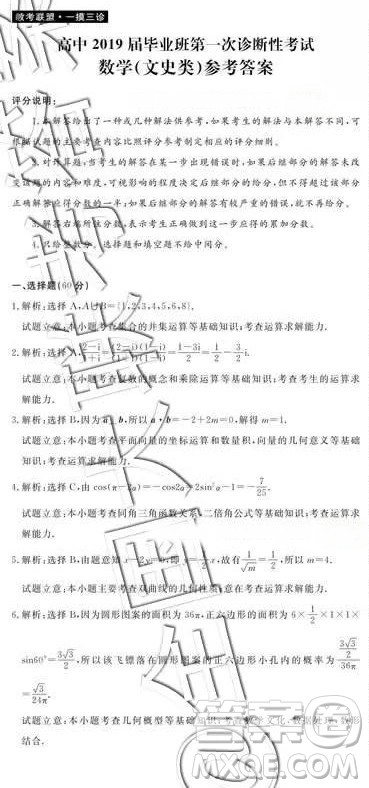 敢考联盟·一摸三诊
高中 2019 届毕业班第一次诊断性考试
数学(文史类)参考答案
评分说明:
1. 本解答给出了一种或几种解法供参考,如果考生的解法与本解答不同,可
根据试题的主要考查内容比照评分参考制定相应的评分细则.
2. 对计算题,当考生的解答在某一步出现错误时,如果后继部分的解答未改
变该题的内容和难度,可视影响的程度决定后继部分的给分,但不得超过该部分
正确解答应得分数的一半;如果后继部分的解答有较严重的错误,就不再给分.
3. 解答右端所注分数,表示考生正确做到这一步应得的累加分数.
4. 只给整数分. 选择题和填空题不给中间分.
一、选择题(60 分)
1. 解析:选择 A, A∪B={1,2,3,4,5,6,8}.
试题立意:本小题考查集合的并集运算等基础知识;考查运算求解能力.
2. 解析:选择 A, (2-i)/(1+i)=(2-i)(1-i)/(1+i)(1-i)=(1-3i)/2=1/2-3/2 i.
试题立意:本小题考查复数的概念和乘除运算等基础知识;考查考生的运算求
解能力.
3. 解析:选择 B,因为a⊥b,所以 a·b=-2+2m=0,解得 m=1.
试题立意:本小题考查平面向量的坐标运算和数量积,向量的几何意义等基础
知识;考查运算求解能力.
4. 解析:选择 C,由 cos(π-2α)=-cos2α=2sin²α-1=-7/25.
试题立意:本小题考查同角三角函数关系、二倍角公式等基础知识;考查运算求
解能力.
5. 解析:选择 B,由题意知 x-2y=0,即 y=1/2 x,故有 1/√m=1/2,解得 m=4.
试题立意:本小题主要考查双曲线的几何性质;考查运算求解能力.
6. 解析:选择 B,因为圆形图案的面积为 36π,正六边形的面积为 6×1/2×1×1×
sin60°=3√3/2,所以该飞镖落在圆形图案的正六边形小孔内的概率为 (3√3/2)/36π=
√3/24π.
试题立意:本小题考查几何概型等基础知识;考查数学文化,数据处理,数形
结合.